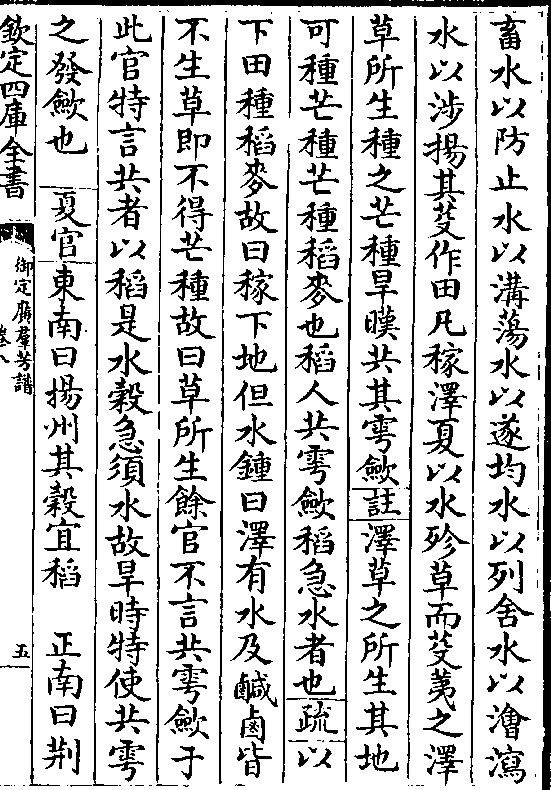 畜水以防止水以溝蕩水以遂均水以列舍水以澮瀉
水以涉揚其芟作田凡稼澤夏以水殄草而芟荑之澤
草所生種之芒種旱暵共其雩斂註澤草之所生其地
可種芒種芒種稻麥也稻人共雩斂稻急水者也疏以
下田種稻麥故曰稼下地但水鍾曰澤有水及鹹鹵皆
不生草即不得芒種故曰草所生餘官不言共雩斂于
此官特言共者以稻是水穀急須水故旱時特使共雩
之發斂也 夏官東南曰揚州其穀宜稻 正南曰荆
欽定四庫全書
御定廣羣芳譜
卷八
五